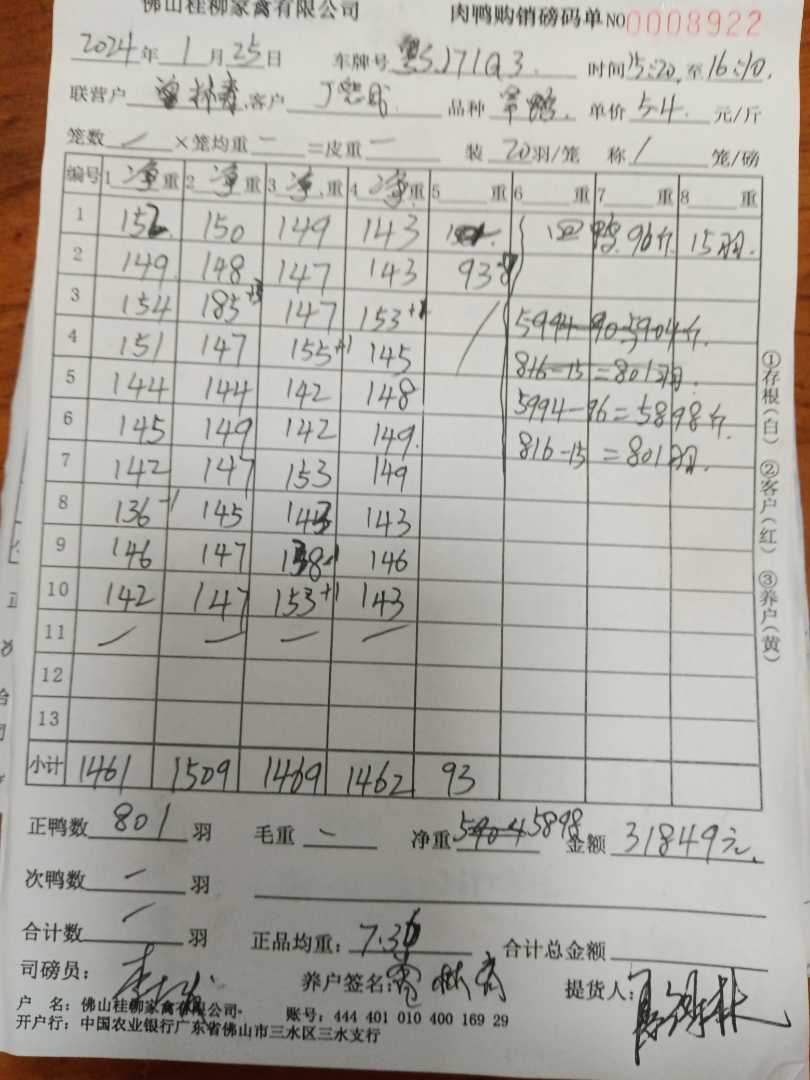 佛山桂柳家禽有限公司 肉鸭购销磅码单 NO 0008922
2024年1月25日 车牌号 S.271Q3 时间15:20至16:10
联营户 客户 品种 单价5.4元/斤
笼数 — ×笼均重 — =皮重 — 装20羽/笼 称/笼/磅
编号 1净重 2净重 3净重 4净重 5重 6重 7重 8重
1 152 150 149 143 回鸭96斤 15羽
2 149 148 147 143 93-8
3 154 185 147 153+1 5994-90=5904斤
4 151 147 155+1 145 816-15=801羽
5 144 144 142 148 5994-96=5898斤
6 145 149 142 149 816-15=801羽
7 142 147 153 149
8 136-1 145 143 143
9 146 147 138-1 146
10 142 147 153+1 143
11 — — — —
12
13
小计 1461 1509 1469 1462 93
①存根(白) ②客户(红) ③养户(黄)
正鸭数 801 羽 毛重 — 净重 5904 5898 金额 31849元
次鸭数 — 羽
合计数 — 羽 正品均重: 7.36 合计总金额
司磅员: 养户签名: 提货人:
户 名: 佛山桂柳家禽有限公司 账号: 444 401 010 400 169 29
开户行: 中国农业银行广东省佛山市三水区三水支行